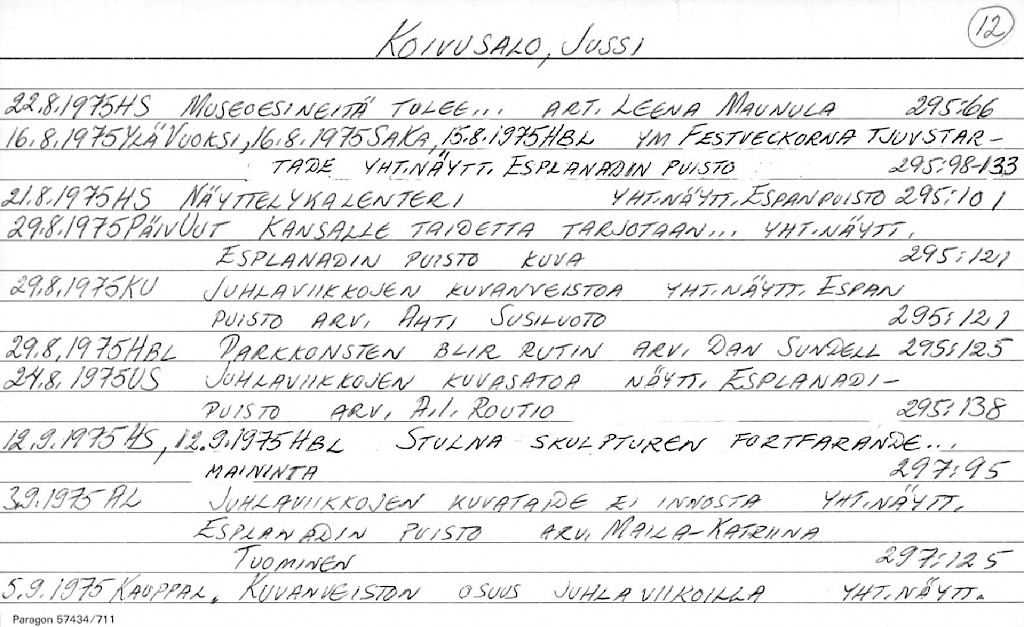 12
KOIVUSALO, JUSSI
22.8.1975 HS MUSEOESINEITÄ TULEE... ART. LEENA MAUNULA 295:66
16.8.1975 YLÄVUOKSI, 16.8.1975 SAKA, 15.8.1975 HBL YM FESTVECKORNA TJUVSTAR-
TADE YHT.NÄYTT. ESPLANADIN PUISTO 295:98-133
21.8.1975 HS NÄYTTELYKALENTERI YHT.NÄYTT. ESPANPUISTO 295:101
29.8.1975 PÄIVUUT KANSALLE TAIDETTA TARJOTAAN... YHT.NÄYTT.
ESPLANADIN PUISTO KUVA 295:121
29.8.1975 KU JUHLAVIIKKOJEN KUVANVEISTOA YHT.NÄYTT. ESPAN
PUISTO ARV. AHTI SUSILUOTO 295:121
29.8.1975 HBL PARKKONSTEN BLIR RUTIN ARV. DAN SUNDELL 295:125
24.8.1975 US JUHLAVIIKKOJEN KUVASATOA NÄYTT. ESPLANADI-
PUISTO ARV. A.I. ROUTIO 295:138
12.9.1975 HS, 12.9.1975 HBL STULNA SKULPTUREN FORTFARANDE...
MAININTA 297:95
3.9.1975 AL JUHLAVIIKKOJEN KUVATAIDE EI INNOSTA YHT.NÄYTT.
ESPLANADIN PUISTO ARV. MAILA-KATRIINA
TUOMINEN 297:125
5.9.1975 KAUPPAL. KUVANVEISTON OSUUS JUHLAVIIKOILLA YHT.NÄYTT.
Paragon 57434/711